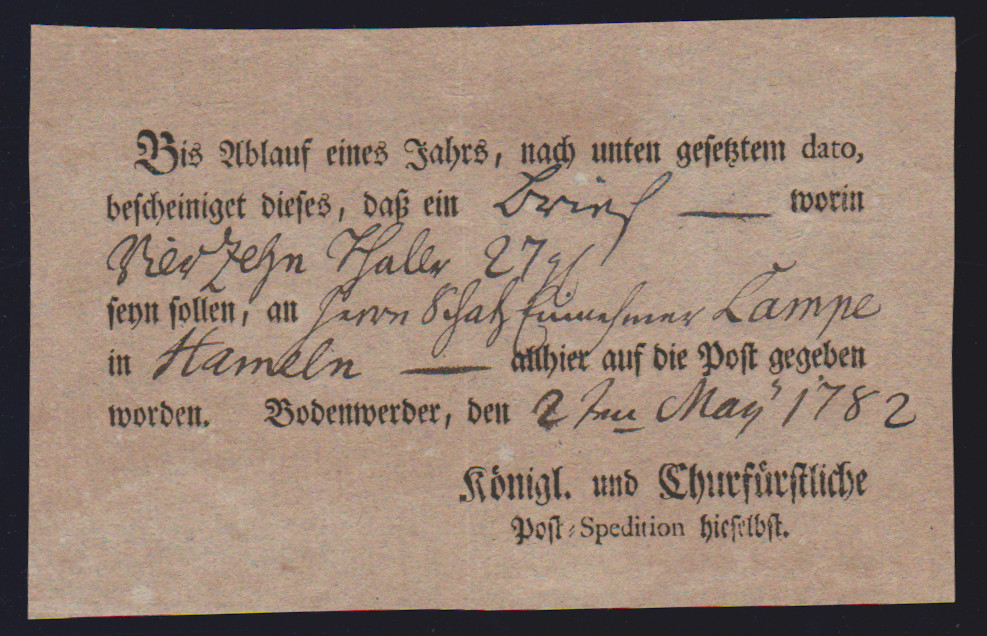 Bis Ablauf eines Jahrs, nach unten gesetztem dato,
bescheiniget dieses, daß ein Brief — worin
Vierzehn Thaler 27 gl
seyn sollen, an Herrn Schatz Einnehmer Lampe
in Hameln — allhier auf die Post gegeben
worden. Bodenwerder, den 2ten May 1782
Königl. und Churfürstliche
Post-Spedition hieselbst.